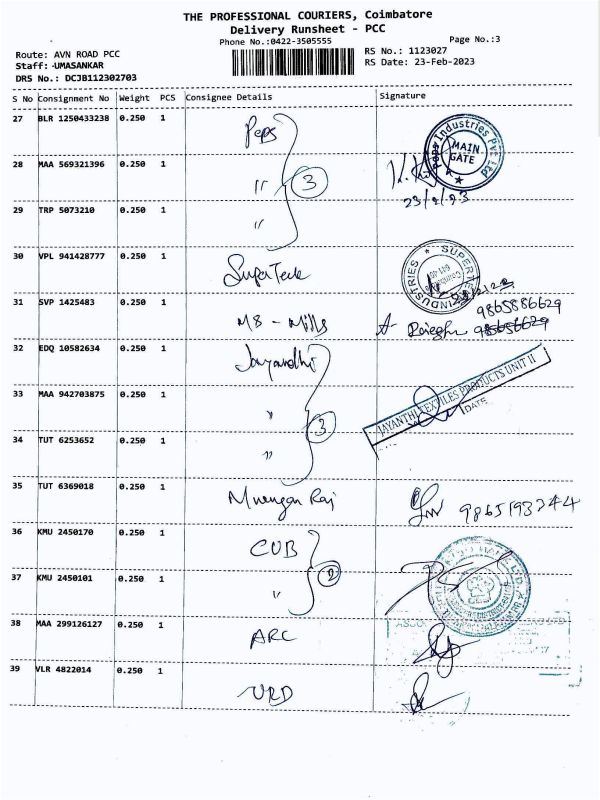 THE PROFESSIONAL COURIERS, Coimbatore
Delivery Runsheet - PCC
Phone No.:0422-3505555 Page No.:3
Route: AVN ROAD PCC RS No.: 1123027
Staff: UMASANKAR RS Date: 23-Feb-2023
DRS No.: DCJB112302703
S No Consignment No Weight PCS Consignee Details Signature
27 BLR 1250433238 0.250 1 Peps
Peps Industries Pvt Ltd
MAIN GATE
28 MAA 569321396 0.250 1 〃 3
23/2/23
29 TRP 5073210 0.250 1 〃
30 VPL 941428777 0.250 1
INDUSTRIES
31 SVP 1425483 0.250 1 MB - Mills
9865886629
32 EDQ 10582634 0.250 1 Jayandhi
33 MAA 942703875 0.250 1 〃 3
JAYANTHI TEXTILES PRODUCTS UNIT II
DATE
34 TUT 6253652 0.250 1 〃
35 TUT 6369018 0.250 1 Murugan Raj
36 KMU 2450170 0.250 1 CUB
37 KMU 2450101 0.250 1 〃 2
38 MAA 299126127 0.250 1 ARC
39 VLR 4822014 0.250 1 URD